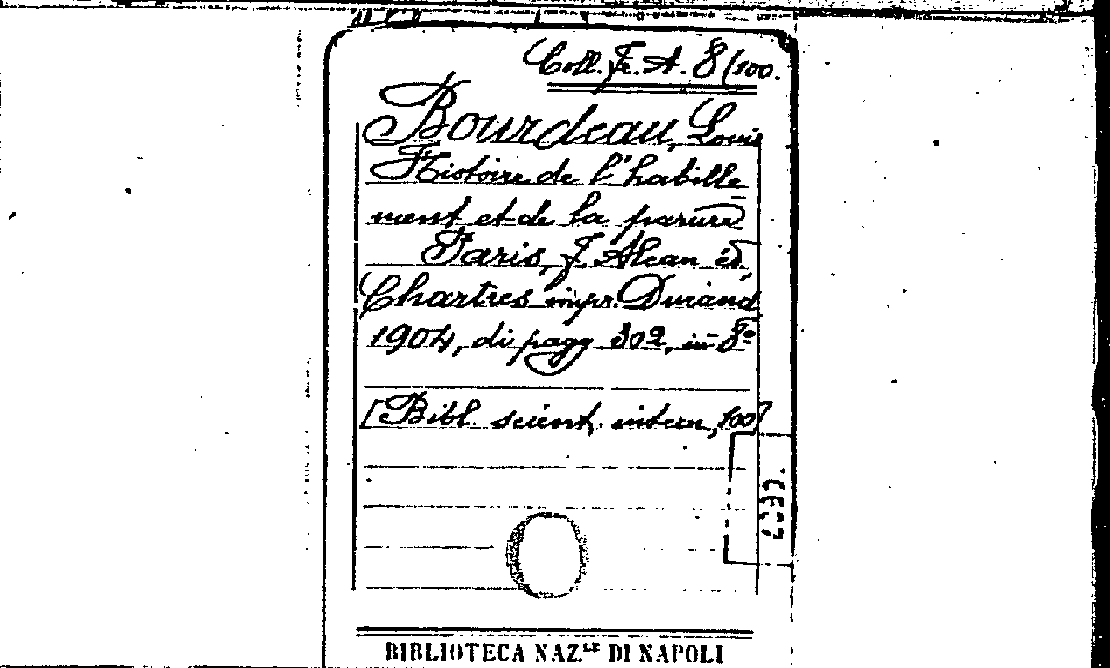 Coll. Fr. A. 8/100.
Bourdeau, Louis
Histoire de l'habille
ment et de la parure
Paris, F. Alcan éd,
Chartres impr. Durand
1904, di pagg 302, in 8º
[Bibl. scient. intern, 100]
BIBLIOTECA NAZ.LE DI NAPOLI